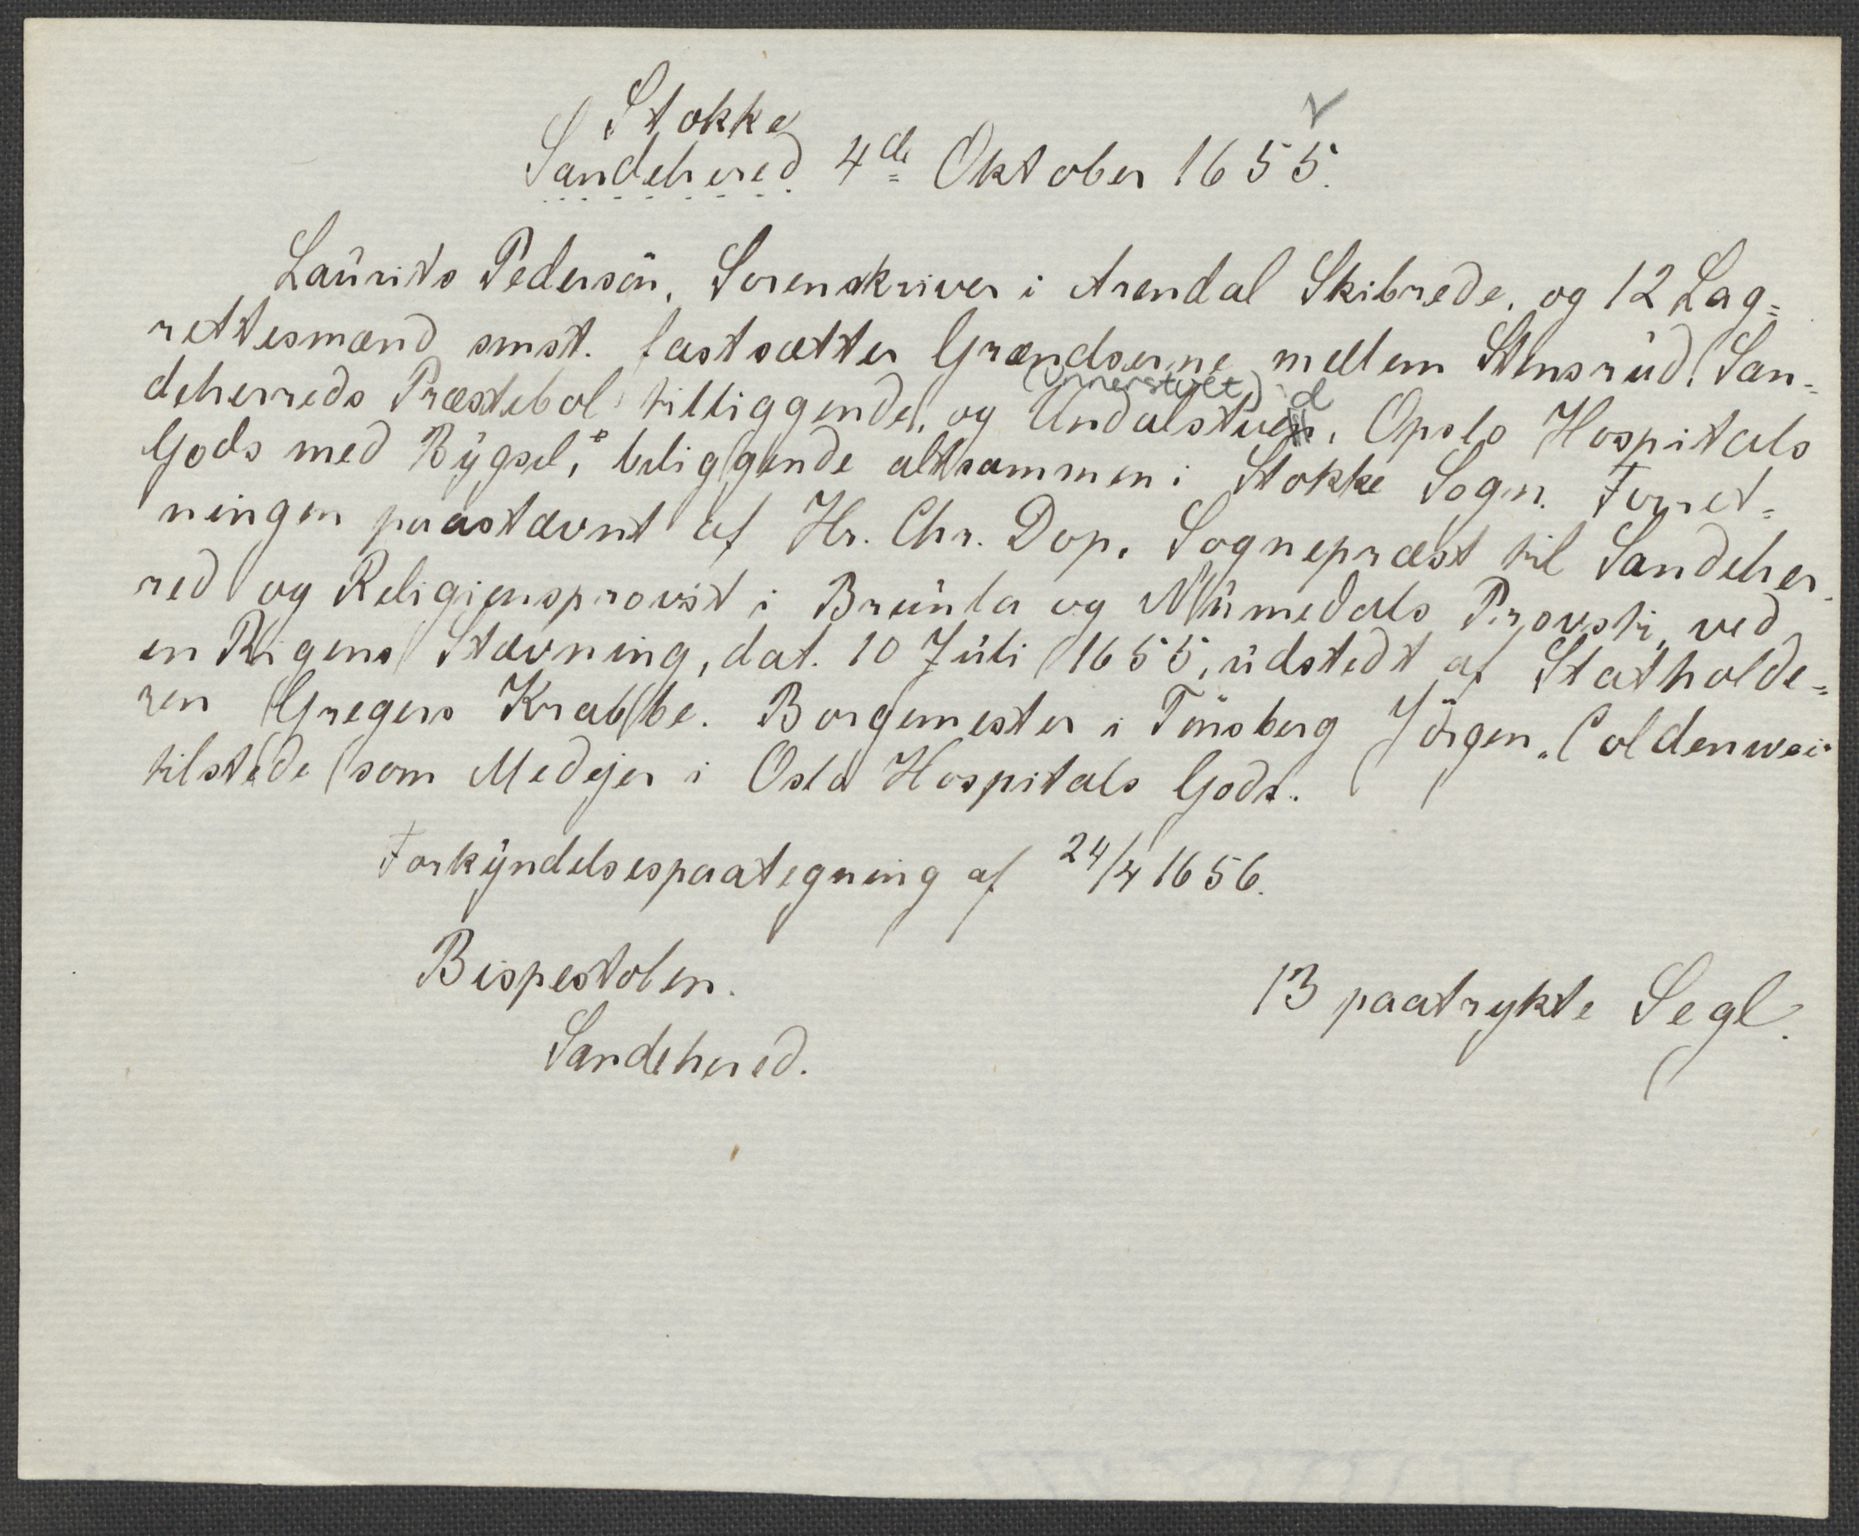 Stokke
Sandehered 4de Oktober 1655.
Laurits Pedersön, Sorenskriver i Arendal Skibrede, og 12 Lag=
rettesmænd smst. fastsætter Grændserne mellem Stensrud, San=
deherreds Præstebol tilliggende, og Undalstuen, Opslo Hospitals
(Unnerstvet) d
Gods med Bygsel, beliggende altsammen i Stokke Sogn. Forret=
ningen paastævnt af Hr. Chr. Dop, Sognepræst til Sandeher
red og Religionsprovst i Brunla og Numedals Provsti, ved
en Rigens Stævning, dat. 10 Juli 1655, udstedt af Statholde=
ren Gregers Krabbe. Borgemester i Tönsberg Jörgen Coldenwei
tilstede som Medejer i Oslo Hospitals Gods.
Forkyndelsespaategning af 24/4 1656.
Bispestolen.
13 paatrykte Segl.
Sandehered.